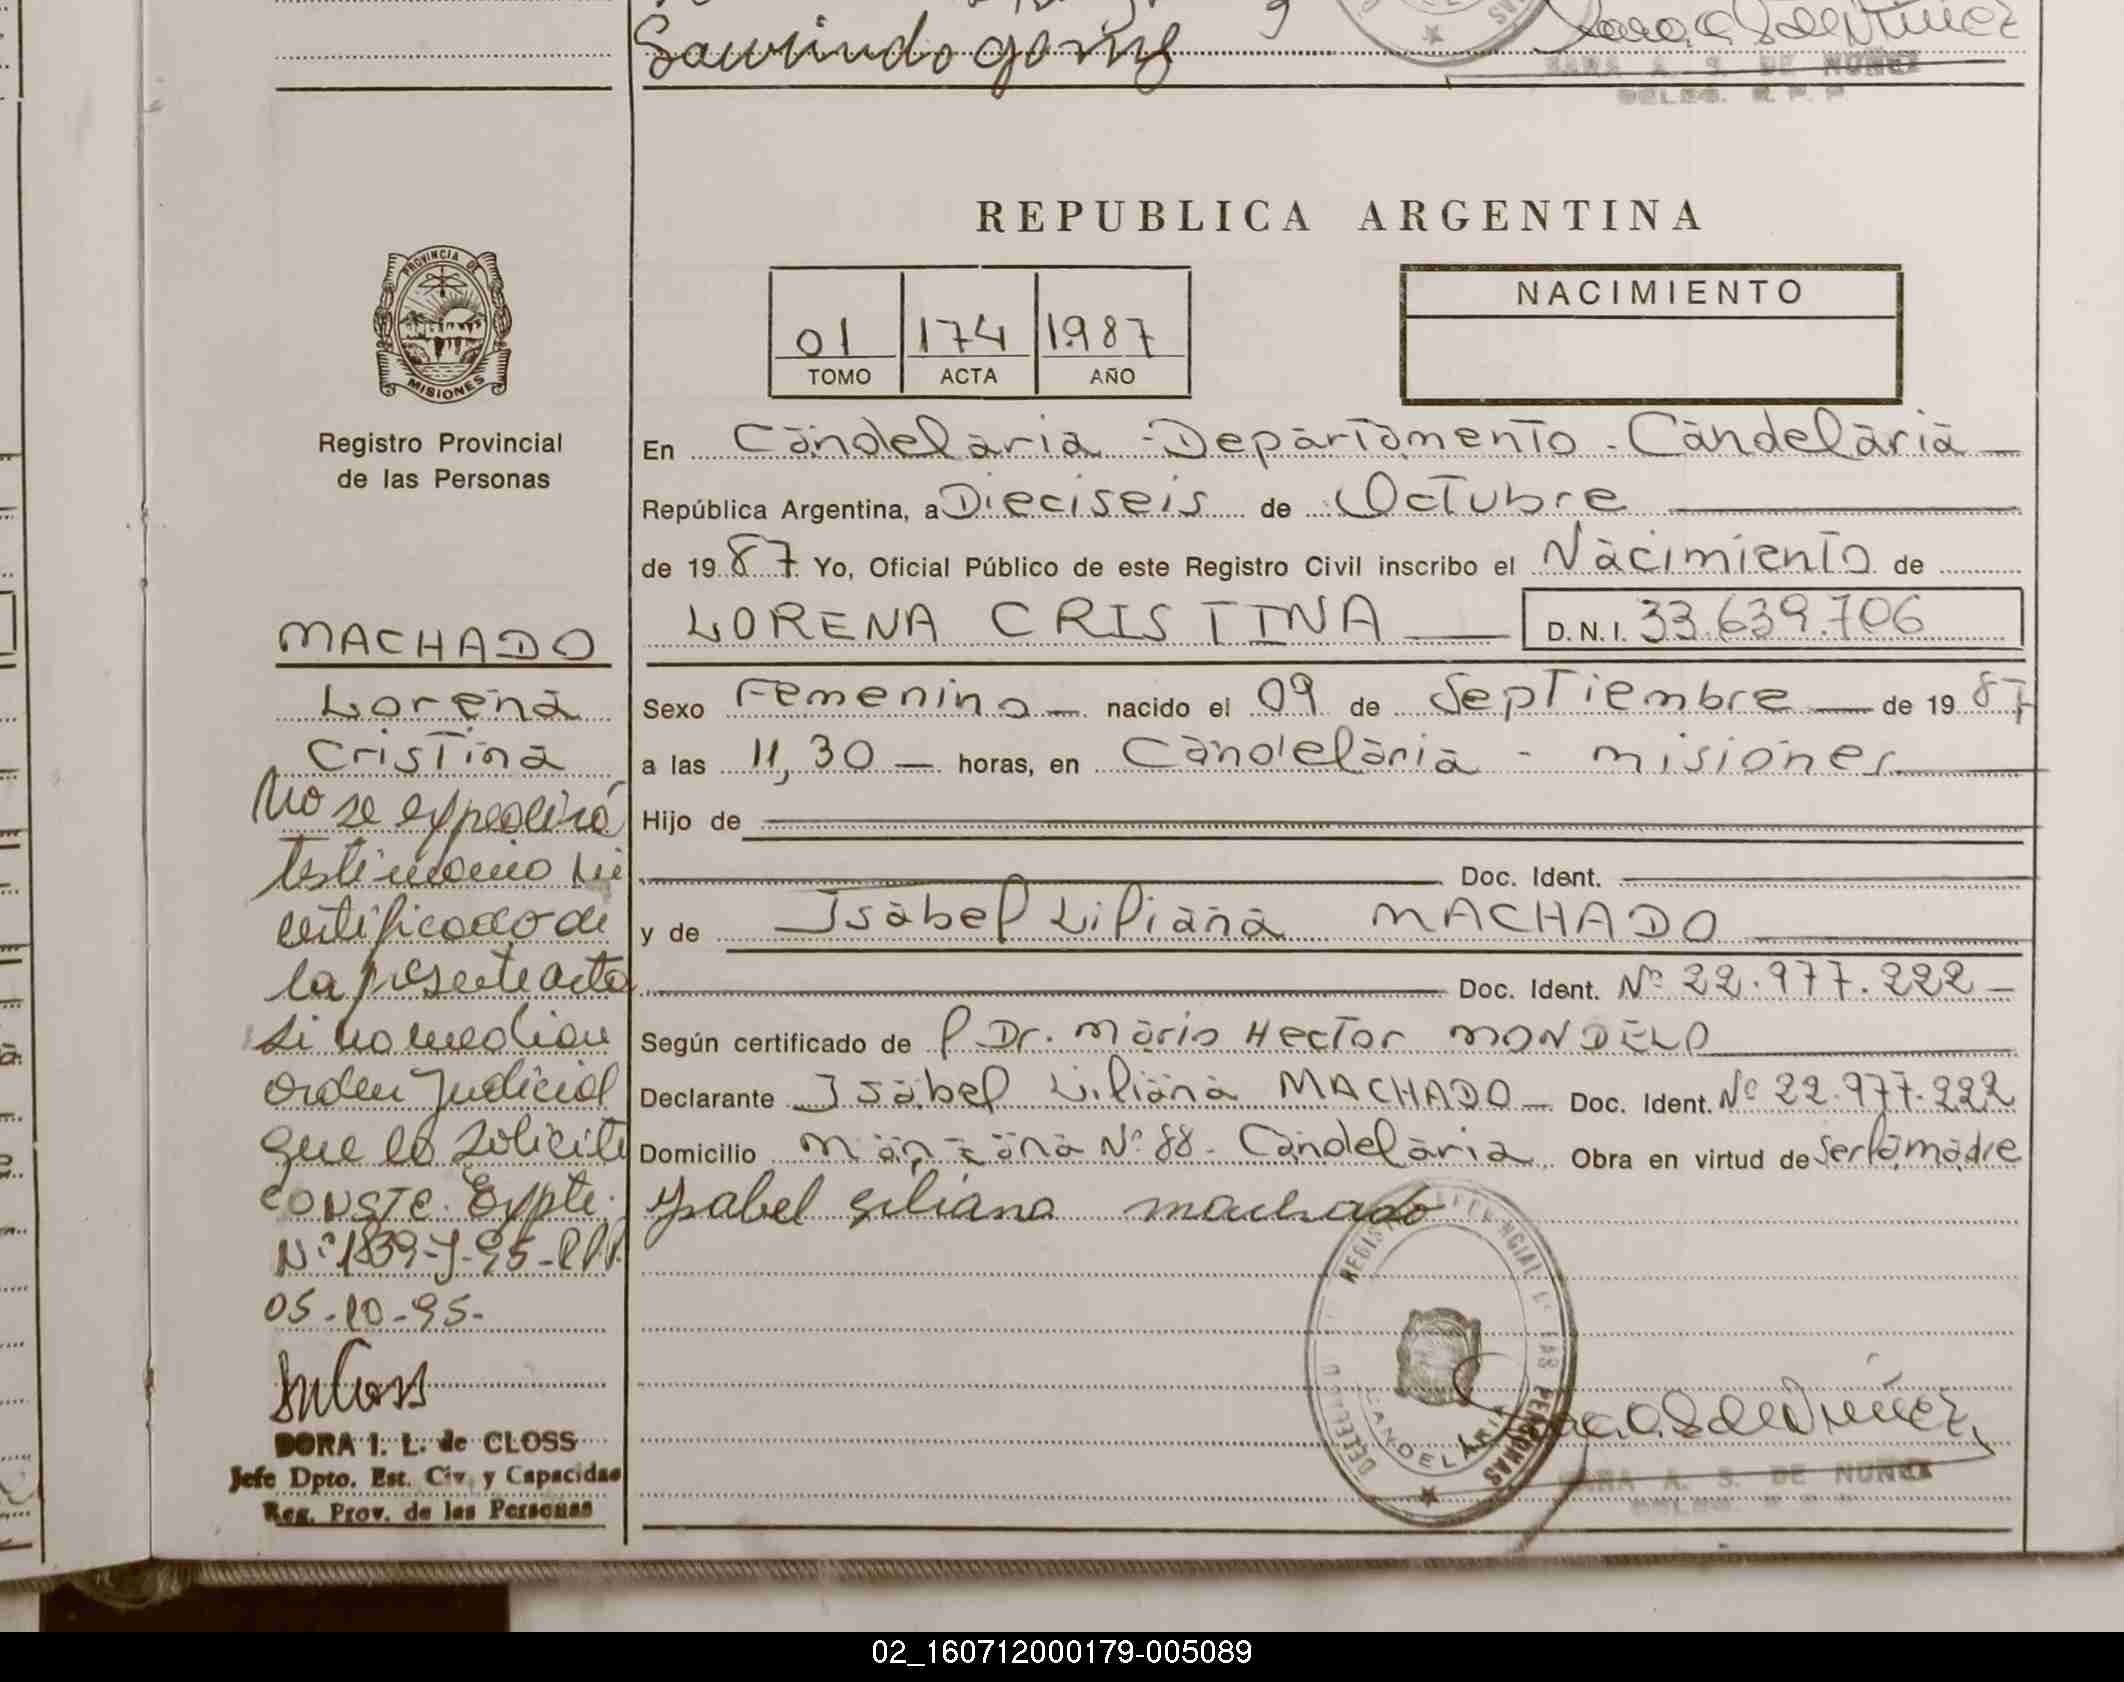 Saturnindo gomez
SARA A. S. DE NUÑEZ
DELEG. R. P. P.
REPUBLICA ARGENTINA
PROVINCIA DE
MISIONES
Registro Provincial
de las Personas
01 174 1987
TOMO ACTA AÑO
NACIMIENTO
En Candelaria - Departamento - Candelaria
República Argentina, a Dieciseis de Octubre
de 1987 Yo, Oficial Público de este Registro Civil inscribo el Nacimiento de
LORENA CRISTINA D.N.I. 33.639.706
Sexo Femenino nacido el 09 de Septiembre de 1987
a las 11,30 horas, en Candelaria - misiones
Hijo de
Doc. Ident.
y de Isabel Liliana MACHADO
Doc. Ident. Nº 22.977.222
Según certificado de P Dr. Mario Hector MONDELO
Declarante Isabel Liliana MACHADO Doc. Ident. Nº 22.977.222
Domicilio Manzana Nº 88 - Candelaria Obra en virtud de ser la madre
Ysabel Liliana machado
MACHADO
Lorena
Cristina
No se expedirá
testimonio ni
certificado de
la presente acta
si no median
orden Judicial
que lo solicite
CONSTE. Expte.
Nº 1839-J-95-RPP.
05-10-95-
DORA I. L. de CLOSS
Jefe Dpto. Est. Civ. y Capacidad
Reg. Prov. de las Personas
REGISTRO PROVINCIAL DE LAS PERSONAS
CANDELARIA
SARA A. S. DE NUÑEZ
DELEG. R. P. P.
02_160712000179-005089